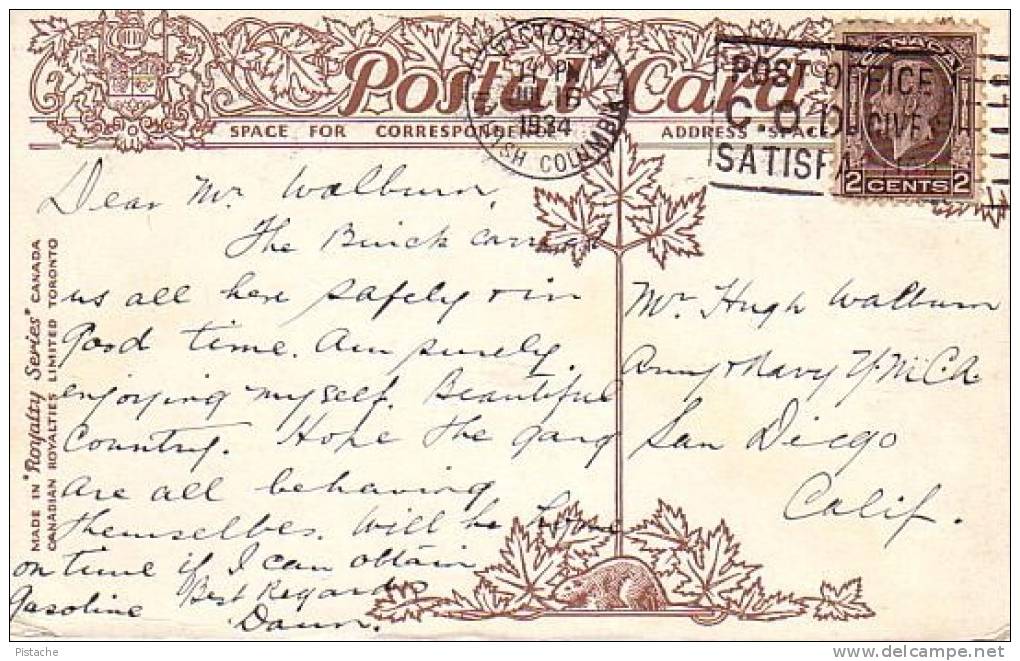 Postal Card
SPACE FOR CORRESPONDENCE
ADDRESS SPACE
VICTORIA
PM
1934
BRITISH COLUMBIA
POST OFFICE
C.O.D. GIVES
SATISFA
CANADA
2 CENTS 2
MADE IN "Royalty Series" CANADA
CANADIAN ROYALTIES LIMITED TORONTO
Dear Mr. Walburn,
The Buick carried
us all here safely & in
good time. Am surely
enjoying myself. Beautiful
Country. Hope the gang
are all behaving
themselves. Will be home
on time if I can obtain
gasoline Best Regards
Mr. Hugh Walburn
Army & Navy Y.M.C.A.
San Diego
Calif.
Pistache
delcampe.net